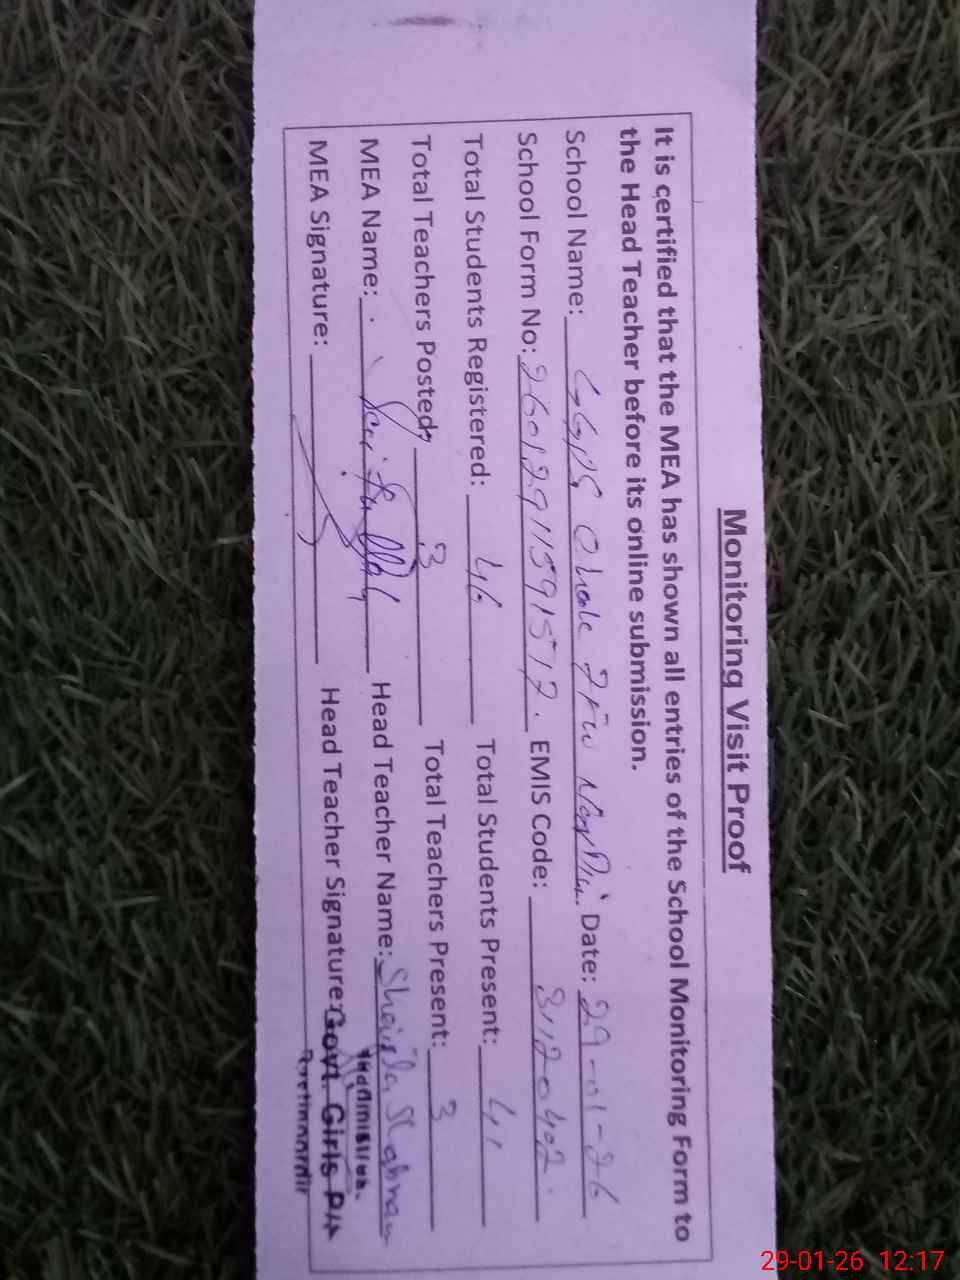 Monitoring Visit Proof
It is certified that the MEA has shown all entries of the School Monitoring Form to
the Head Teacher before its online submission.
School Name: GGPS Date: 29-01-26
School Form No: EMIS Code: 31120402
Total Students Registered: 46 Total Students Present: 41
Total Teachers Posted: 3 Total Teachers Present: 3
MEA Name: Head Teacher Name: Shaista
MEA Signature: Head Teacher Signature: Govt. Girls
29-01-26 12:17